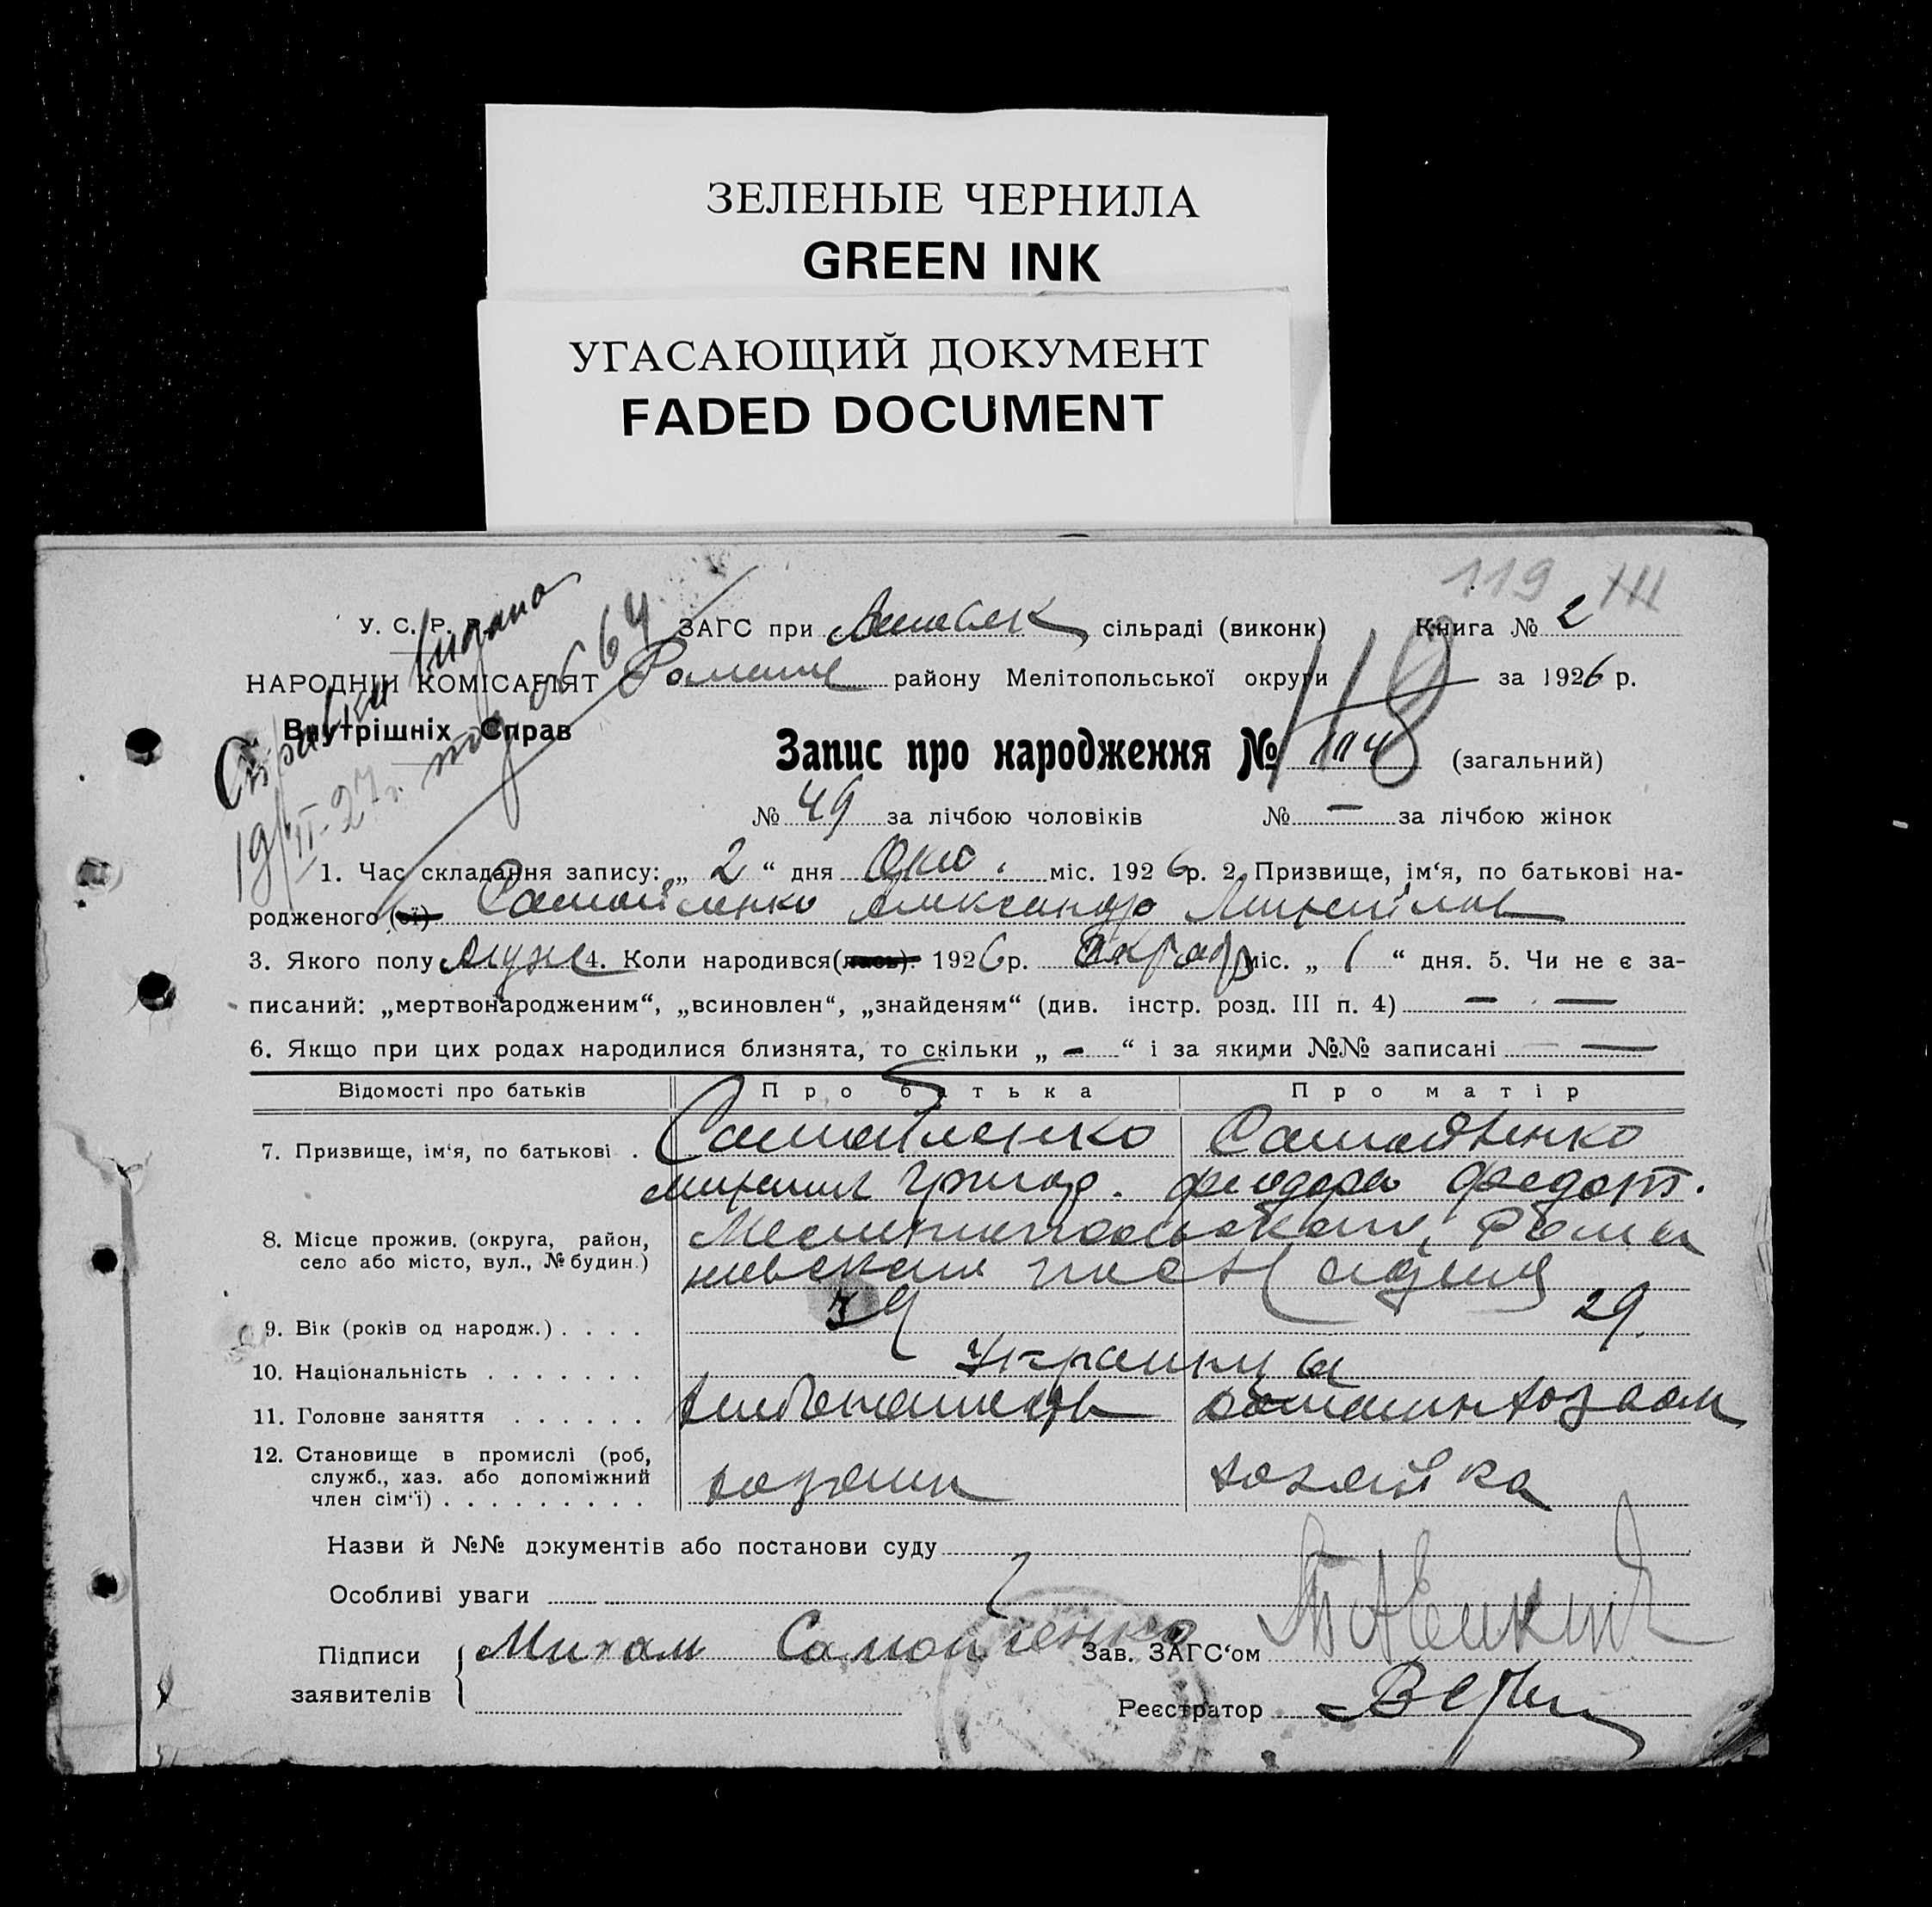 ЗЕЛЕНЫЕ ЧЕРНИЛА
GREEN INK
УГАСАЮЩИЙ ДОКУМЕНТ
FADED DOCUMENT
119
У. С. Р. Р.
ЗАГС при сільраді (виконк) Книга № 2
НАРОДНІЙ КОМІСАРІЯТ району Мелітопольської округи за 1926 р.
Внутрішніх Справ
Справки видано
19/II-27 г. под № 64
118
Запис про народження № 114 (загальний)
№ 49 за лічбою чоловіків № — за лічбою жінок
1. Час складання запису: „ 2 “ дня Окт. міс. 1926 р. 2. Призвище, ім‘я, по батькові на-
родженого (ої) Самойленко Александр
3. Якого полу муж 4. Коли народився (лась). 1926 р. міс. „ 1 “ дня. 5. Чи не є за-
писаний: „мертвонародженим“, „всиновлен“, „знайденям“ (див. інстр. розд. III п. 4) — —
6. Якщо при цих родах народилися близнята, то скільки „ - “ і за якими №№ записані —
Відомості про батьків Про батька Про матір
7. Призвище, ім‘я, по батькові . Самойленко Самойленко
Григор. Феодора Федот.
8. Місце прожив. (округа, район,
село або місто, вул., № будин.)
9. Вік (років од народж.) . . . . 29.
10. Національність . . . . . . . Украинцы
11. Головне заняття . . . . . . хлебопашець
12. Становище в промислі (роб,
служб., хаз. або допоміжний
член сім‘ї) . . . . . . . . . хозяин хозяйка
Назви й №№ документів або постанови суду
Особливі уваги
Підписи
заявителів
Михаил Самойленко
Зав. ЗАГС‘ом
Реєстратор